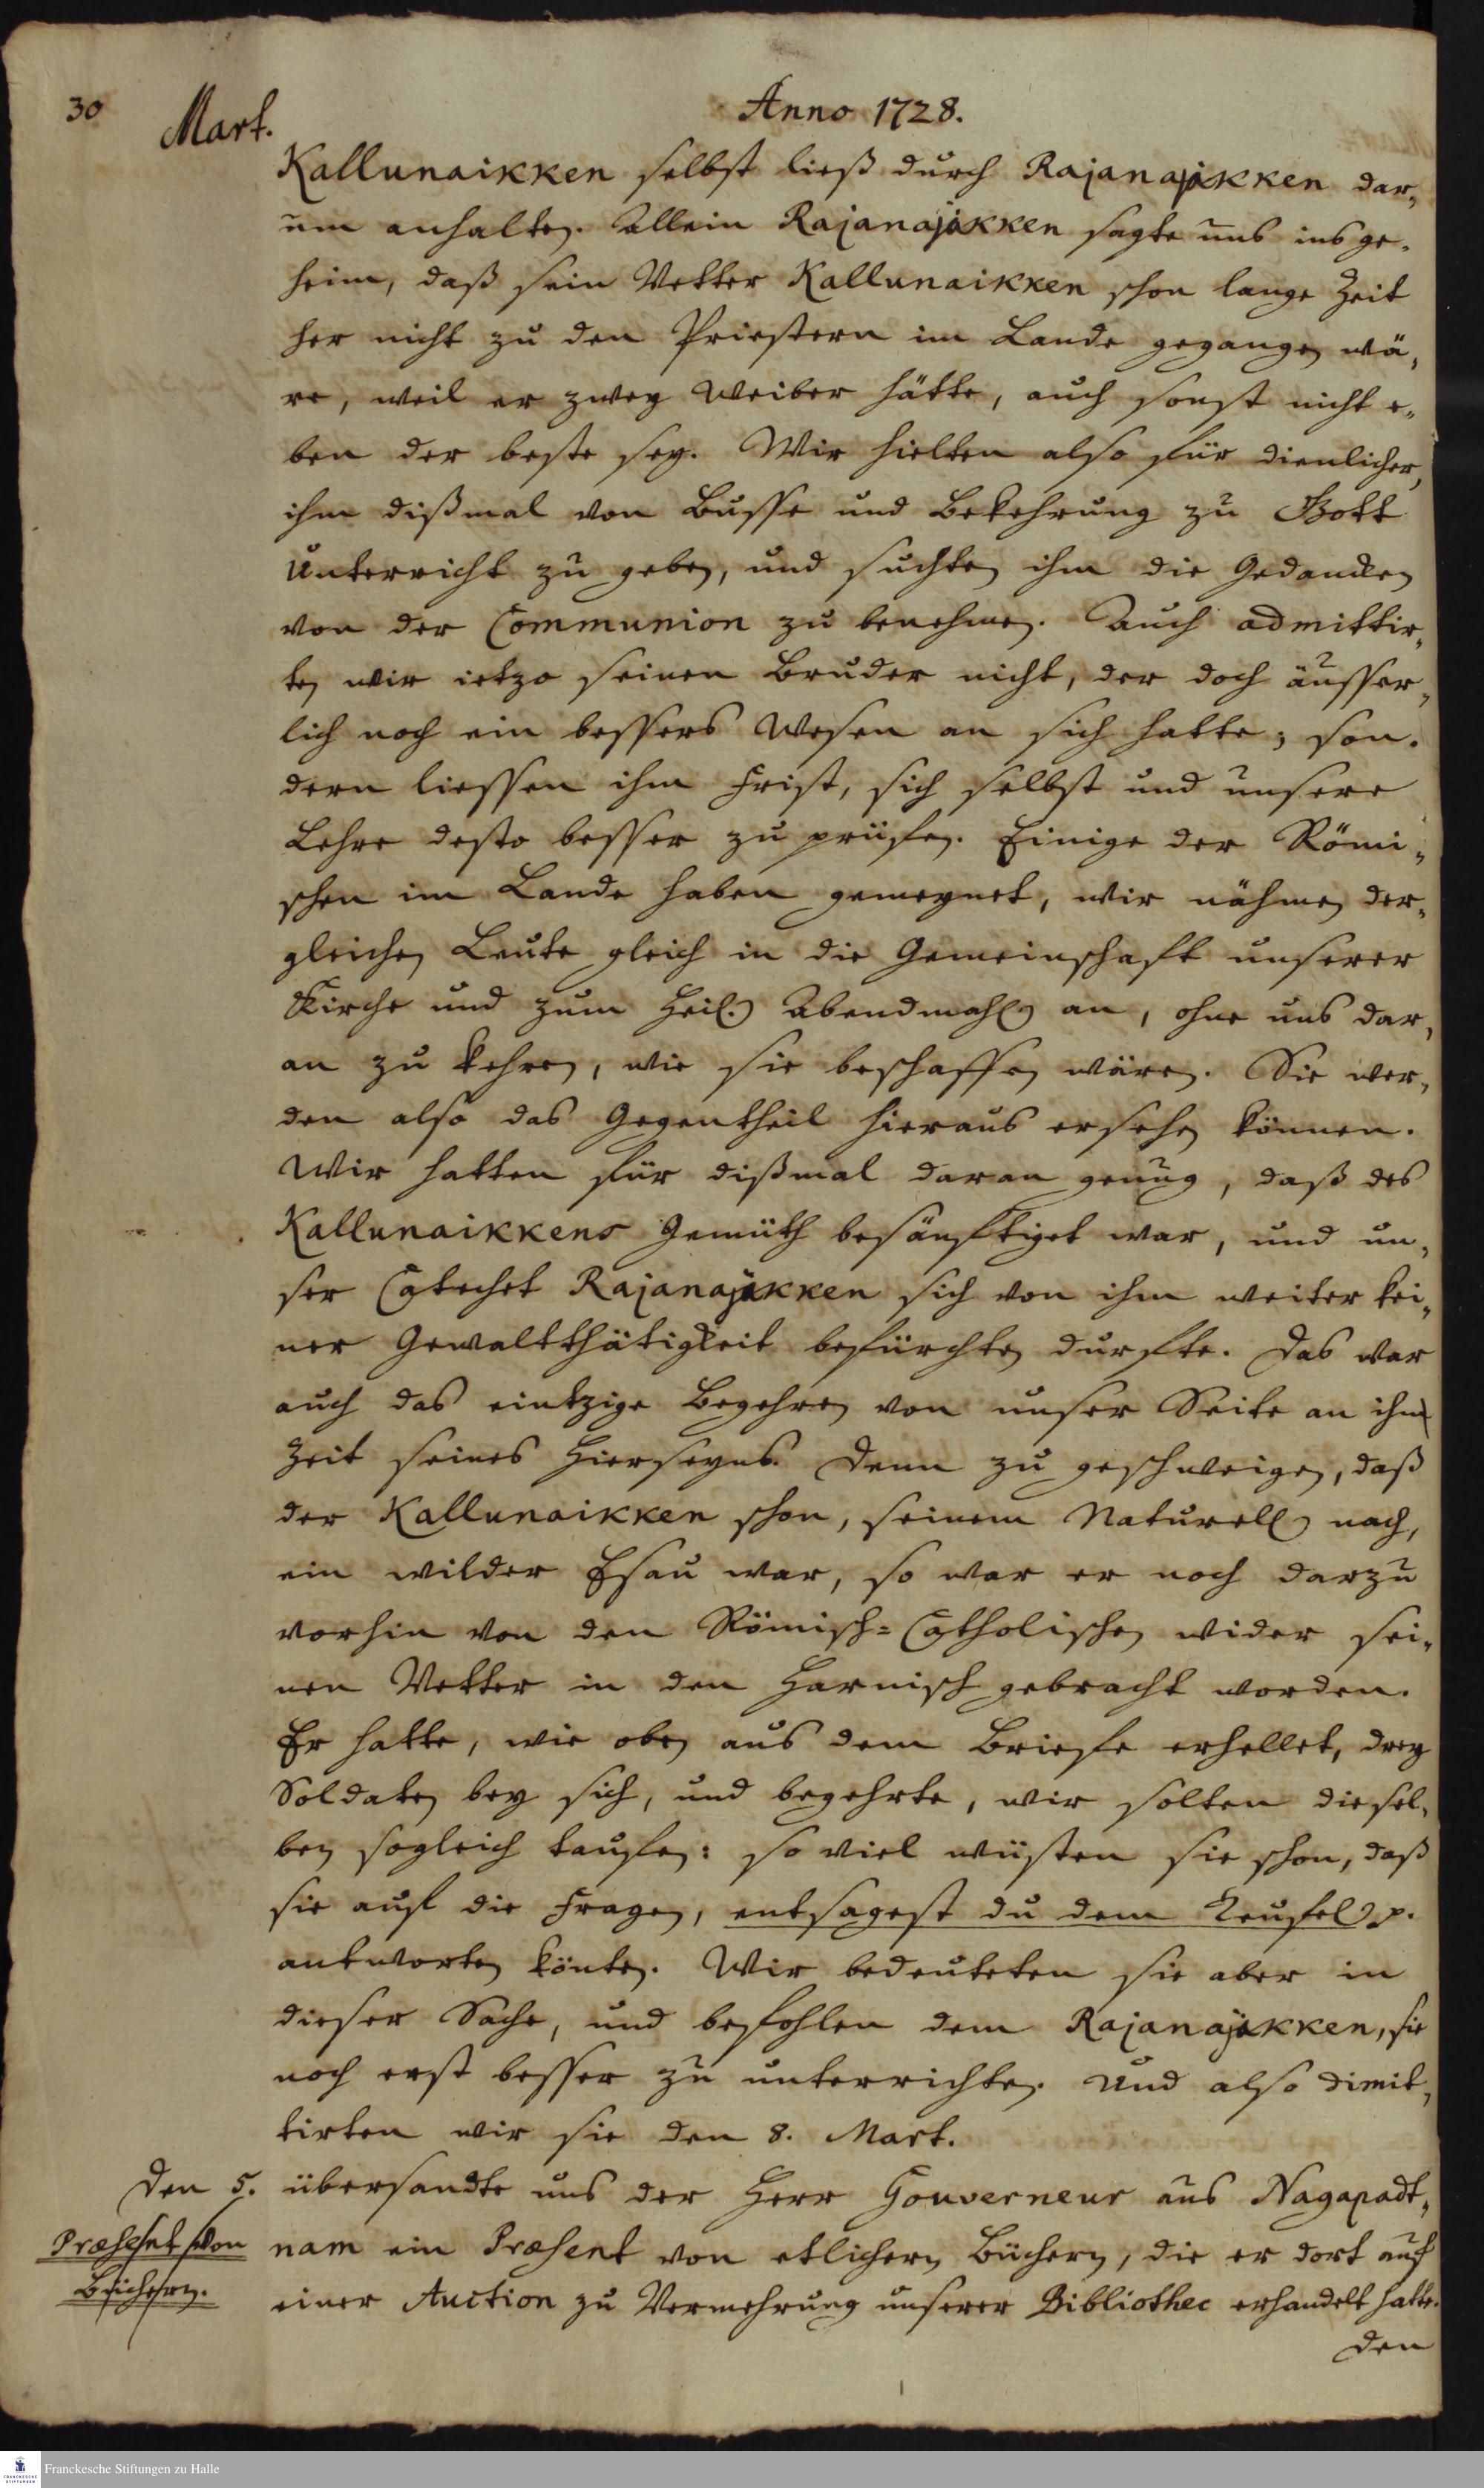 30
Mart.
Anno 1728.
Kallunaikken selbst ließ durch Rajanajakken dar-
um anhalten. Allein Rajanajakken sagte uns ins ge-
heim, daß sein Vetter Kallunaikken schon lange Zeit
her nicht zu den Priestern im Lande gegangen wä-
re, weil er zwey Weiber hätte, auch sonst nicht e-
ben der beste sey. Wir hielten also für dienlicher,
ihm dißmal von Busse und Bekehrung zu Gott
Unterricht zu geben, und suchten ihm die Gedancken
von der Communion zu benehmen. Auch admittir-
ten wir ietzo seinen Bruder nicht, der doch äusser-
lich noch ein bessers Wesen an sich hatte; son-
dern liessen ihm Frist, sich selbst und unsere
Lehre desto besser zu prüfen. Einige der Römi-
schen im Lande haben gemeynet, wir nähmen der-
gleichen Leute gleich in die Gemeinschaft unserer
Kirche und zum Heil. Abendmahl an, ohne uns dar-
an zu kehren, wie sie beschaffen wären. Sie wer-
den also das Gegentheil hieraus ersehen können.
Wir hatten für dißmal daran genug, daß des
Kallunaikkens Gemüth besänftiget war, und un-
ser Catechet Rajanajakken sich von ihm weiter kei-
ner Gewaltthätigkeit befürchten durfte. Das war
auch das eintzige Begehren von unser Seite an ihm
Zeit seines Hierseyns. Denn zu geschweigen, daß
der Kallunaikken schon, seinem Naturell nach,
ein wilder Esau war, so war er noch darzu
vorhin von den Römisch-Catholischen wider sei-
nen Vetter in den Harnisch gebracht worden.
Er hatte, wie oben aus dem Briefe erhellet, drey
Soldaten bey sich, und begehrte, wir solten diesel-
ben sogleich taufen: so viel wüsten sie schon, daß
sie auf die Fragen, entsagest du dem Teufel p.
antworten könten. Wir bedeuteten sie aber in
dieser Sache, und befohlen dem Rajanajakken, sie
noch erst besser zu unterrichten. Und also dimit-
tirten wir sie den 8. Mart.
Den 5. übersandte uns der Herr Gouverneur aus Nagapadt-
Præsent von
Büchern.
nam ein Præsent von etlichern Büchern, die er dort auf
einer Auction zu Vermehrung unserer Bibliothec erhandelt hatte.
Den
Franckesche Stiftungen zu Halle